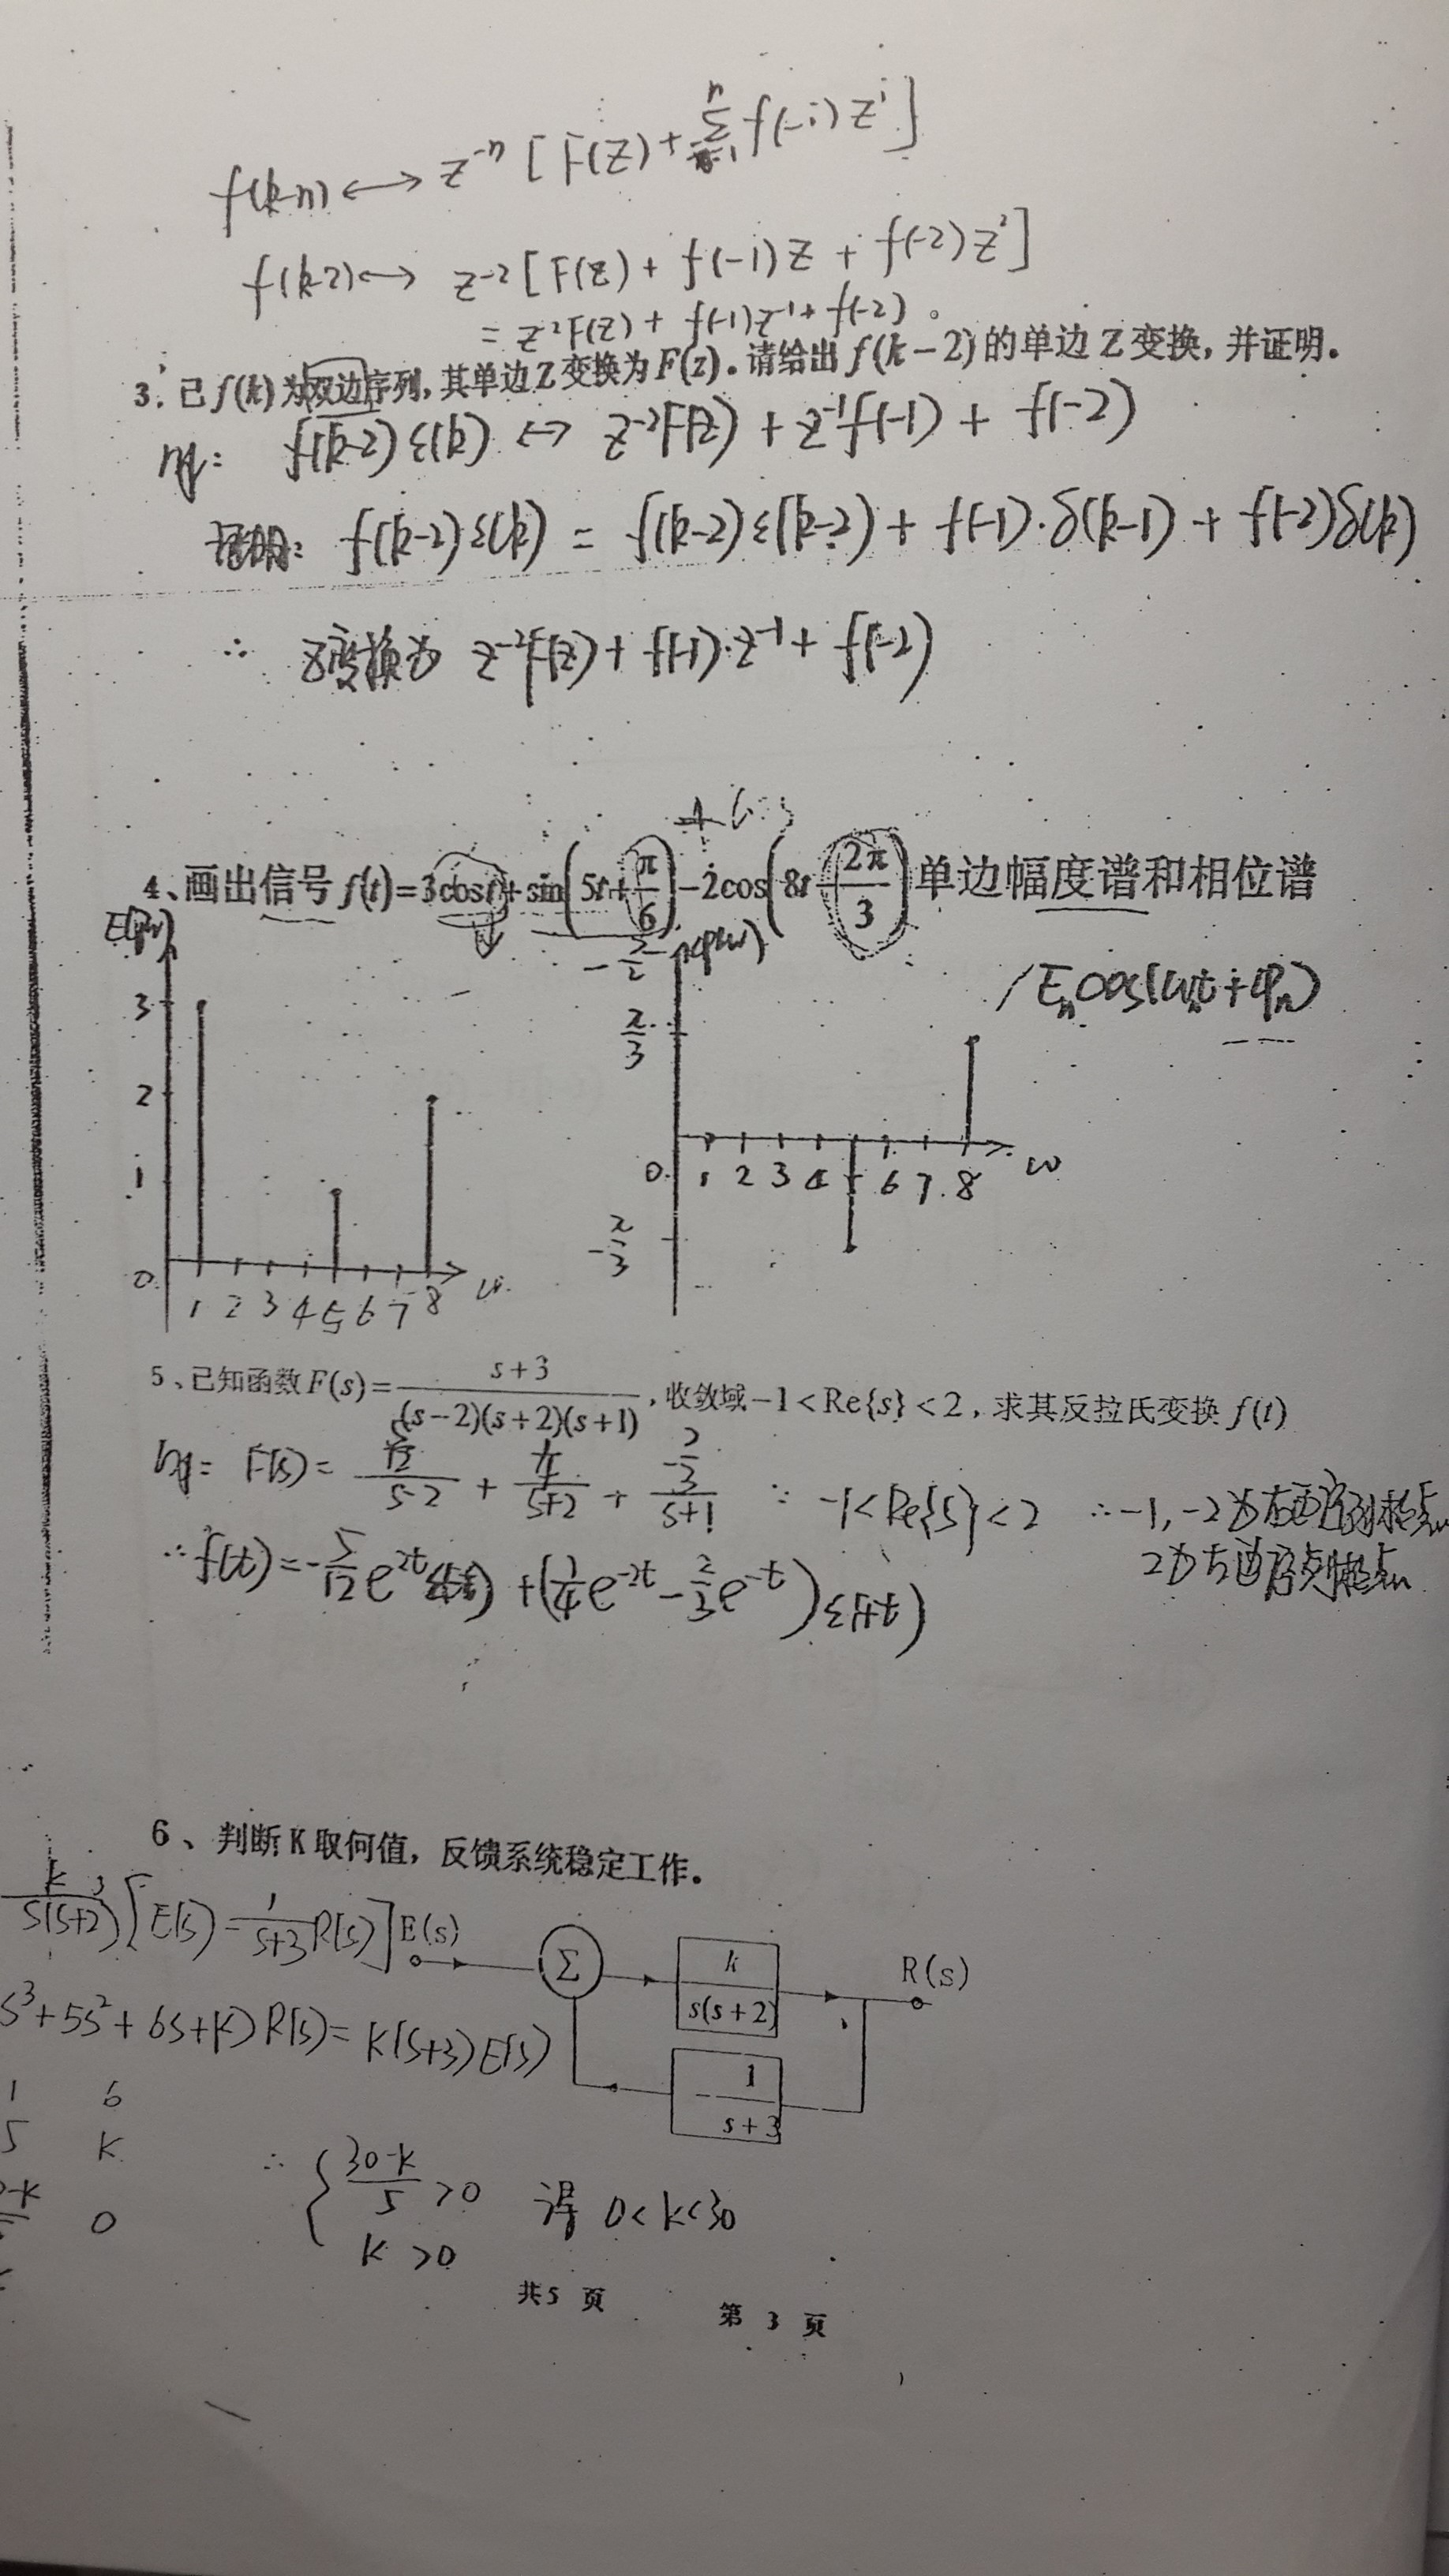 f(k-n) ⟷ z⁻ⁿ [F(z) + Σⁿᵢ₌₁ f(-i) zⁱ]
f(k-2) ⟷ z⁻² [F(z) + f(-1)z + f(-2)z²]
= z⁻²F(z) + f(-1)z⁻¹ + f(-2)。
3. 已f(k)为双边序列, 其单边Z变换为F(z)。请给出f(k-2)的单边Z变换, 并证明。
解: f(k-2)ε(k) ↔ z⁻²F(z) + z⁻¹f(-1) + f(-2)
证明: f(k-2)ε(k) = f(k-2)ε(k-2) + f(-1)·δ(k-1) + f(-2)δ(k)
∴ Z变换为 z⁻²F(z) + f(-1)·z⁻¹ + f(-2)
4、画出信号 f(t)=3cost+sin(5t+π/6)-2cos(8t-2π/3) 单边幅度谱和相位谱
-π/2
Eₙcos(ωₙt+φₙ)
3
2
1
0 1 2 3 4 5 6 7 8 ω
π/3
0 1 2 3 4 6 7 8 ω
-π/3
5、已知函数F(s)=(s+3)/((s-2)(s+2)(s+1)), 收敛域-1<Re{s}<2, 求其反拉氏变换f(t)
解: F(s) = (5/12)/(s-2) + (1/4)/(s+2) + (-2/3)/(s+1) ∵ -1<Re{s}<2 ∴ -1, -2为
2为
∴ f(t) = -5/12 e²ᵗ + (1/4 e⁻²ᵗ - 2/3 e⁻ᵗ)
6、判断K取何值, 反馈系统稳定工作。
k/(s(s+2)) [E(s) - 1/(s+3) R(s)]
E(s) Σ k/(s(s+2)) R(s)
s³+5s²+6s+k) R(s) = k(s+3)E(s)
-1/(s+3)
1 6
5 k
0
∴ { (30-k)/5 >0 得 0<k<30
k >0
共5 页 第 3 页